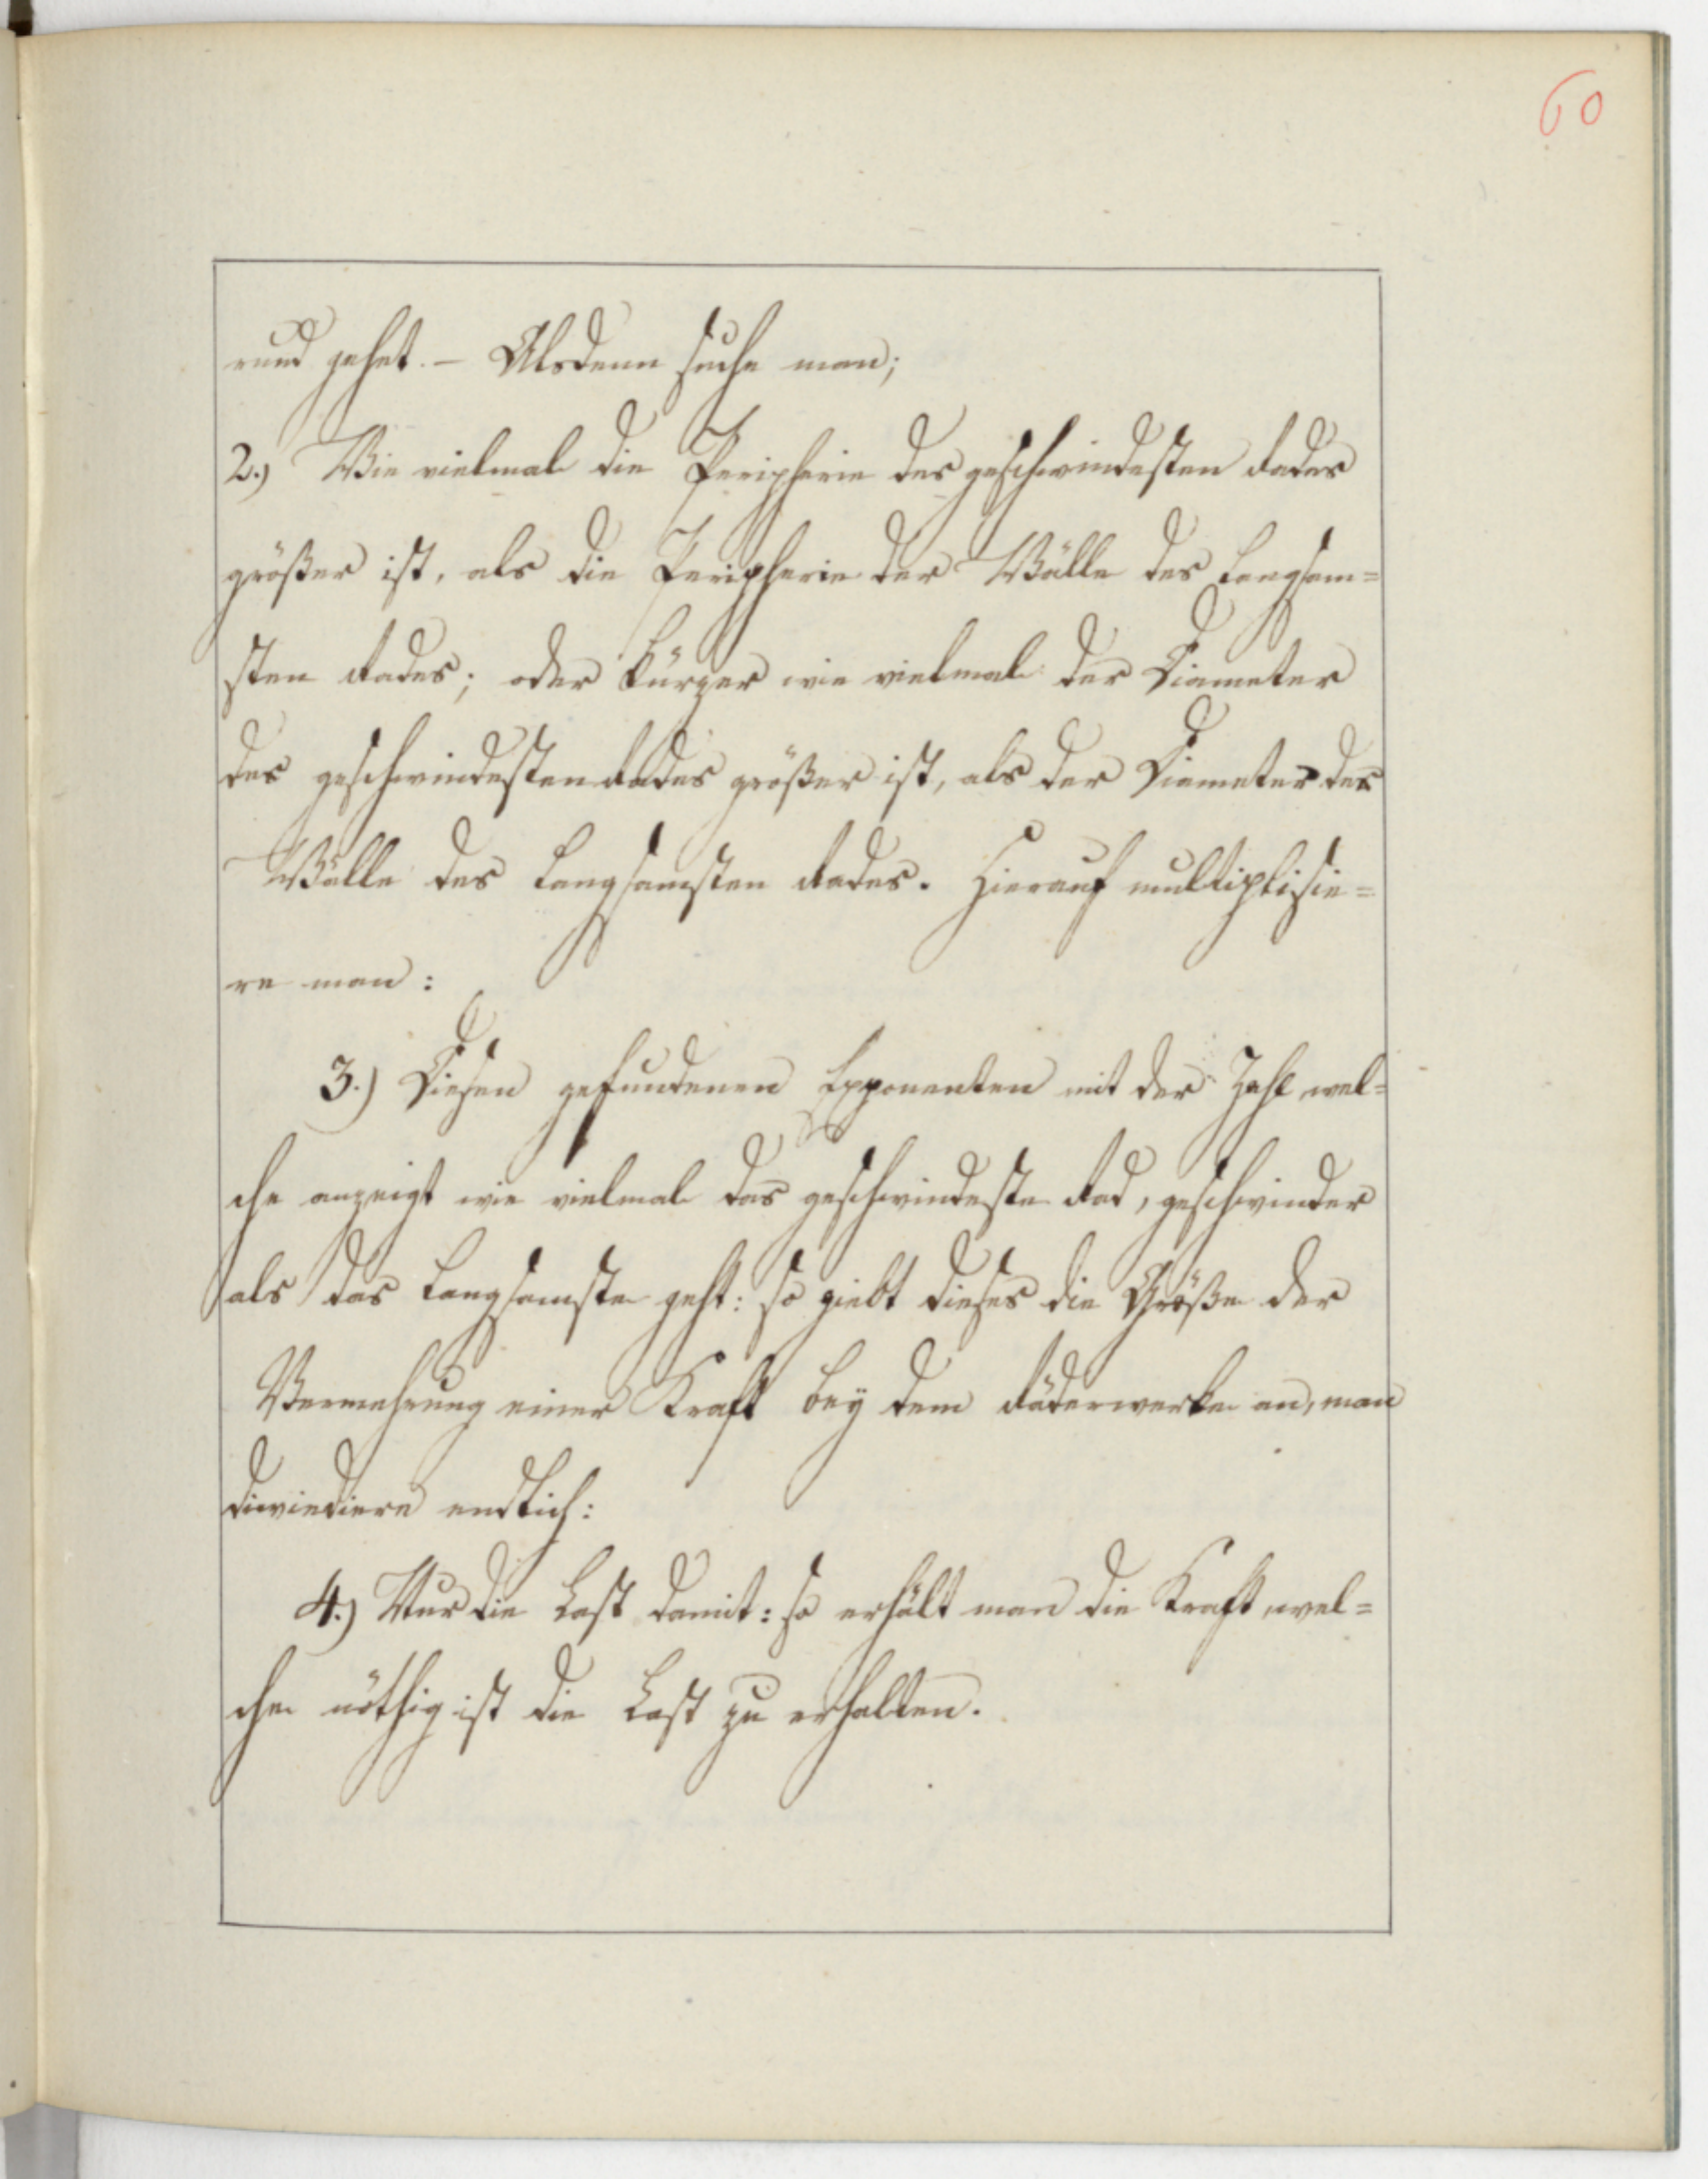 60
rund gehet. – Alsdenn suche man;
2.) Wie vielmal die Peripherie des geschwindesten Rades
größer ist, als die Peripherie der Wälle des Langsam=
sten Rades; oder kürzer wie vielmal der Diameter
des geschwindesten Rades größer ist, als der Diameter der
Wälle des Langsamsten Rades. Hierauf multiplisie=
re man:
3.) Diesen gefundenen Exponenten mit der Zahl wel=
che anzeigt wie vielmal das geschwindeste Rad, geschwinder
als das Langsamste geht: so giebt dieses die Größe der
Vermehrung einer Kraft bey dem Räderwerke an, man
diwiediere endlich:
4.) Nur die Last damit: so erhält man die Kraft, wel=
che nöthig ist die Last zu erhalten.